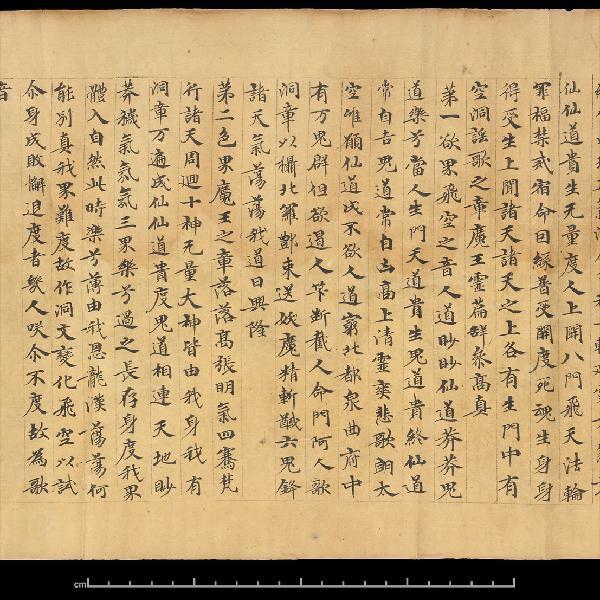 仙仙道貴生无量度人上開八門飛天法輪
罪福禁戒宿命因緣普受開度死魂生身身
得受生上聞諸天諸天之上各有生門中有
空洞謠歌之章魔王靈篇群衆高真
第一欲界飛空之音人道眇眇仙道莽莽鬼
道樂兮當人生門天道貴生鬼道貴終仙道
常自吉鬼道常自凶高上清靈爽悲歌朗太
空唯願仙道成不欲人道窮北都泉曲府中
有万鬼群但欲遏人筭斷截人命門阿人歌
洞章以攝北羅酆束送妖魔精斬馘六鬼鋒
諸天氣蕩蕩我道日興隆
第二色界魔王之章落落高張明氣四騫梵
行諸天周迴十神无量大神皆由我身我有
洞章万遍成仙仙道貴度鬼道相連天地眇
莽穢氣氣氣三界樂兮過之長存身度我界
體入自然此時樂兮薄由我恩龍漢蕩蕩何
能別真我界難度故作洞文變化飛空以試
尒身成敗懈退度者幾人咲尒不度故為歌
音